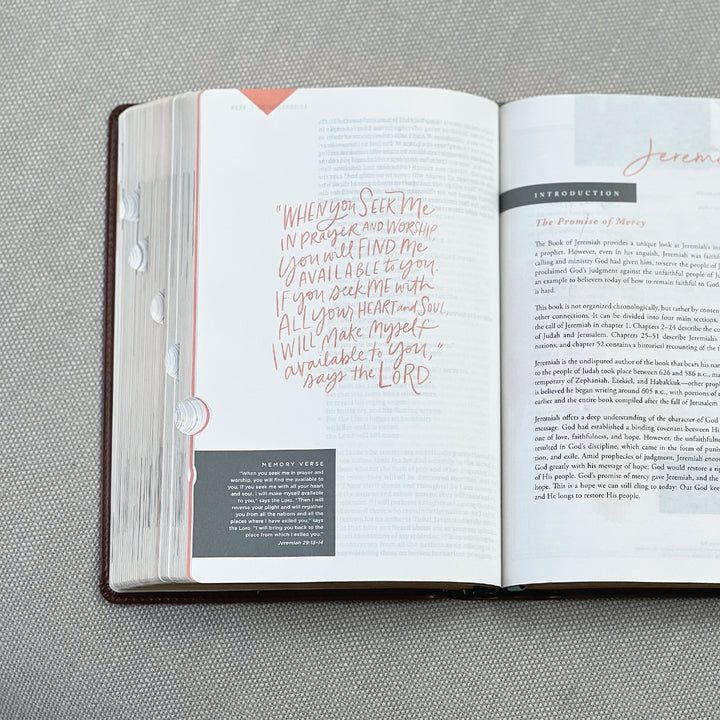 "WHEN you SEEK ME
IN PRAYER AND WORSHIP
You will FIND ME
AVAILABLE to you.
If you seek ME with
ALL your HEART and SOUL,
I WILL Make Myself
available to You,"
says the LORD.
MEMORY VERSE
"When you seek me in prayer and
worship, you will find me available to
you. If you seek me with all your heart
and soul, I will make myself available
to you," says the LORD. "Then I will
reverse your plight and will regather
you from all the nations and all the
places where I have exiled you," says
the LORD. "I will bring you back to the
place from which I exiled you."
Jeremiah 29:13–14
Jerem
INTRODUCTION
The Promise of Mercy
The Book of Jeremiah provides a unique look at Jeremiah's
a prophet. However, even in his anguish, Jeremiah was faith
calling and ministry God had given him, to serve the people of J
proclaimed God's judgment against the unfaithful people of J
an example to believers today of how to remain faithful to God
is hard.
This book is not organized chronologically, but rather by conten
other connections. It can be divided into four main sections,
the call of Jeremiah in chapter 1. Chapters 2–24 describe the co
of Judah and Jerusalem. Chapters 25–51 describe Jeremiah's
nations, and chapter 52 contains a historical recounting of the f
Jeremiah is the undisputed author of the book that bears his nam
to the people of Judah took place between 626 and 586 B.C., ma
temporary of Zephaniah, Ezekiel, and Habakkuk—other prop
is believed he began writing around 605 B.C., with portions of
earlier and the entire book compiled after the fall of Jerusalem
Jeremiah offers a deep understanding of the character of God
message. God had established a binding covenant between Hi
one of love, faithfulness, and hope. However, the unfaithfuln
resulted in God's discipline, which came in the form of punis
tion, and exile. Amid prophecies of judgment, Jeremiah encou
God greatly with his message of hope: God would restore a ri
of His people. God's promise of mercy gave Jeremiah, and the
hope. This is a hope we can still cling to today: Our God kee
and He longs to restore His people.